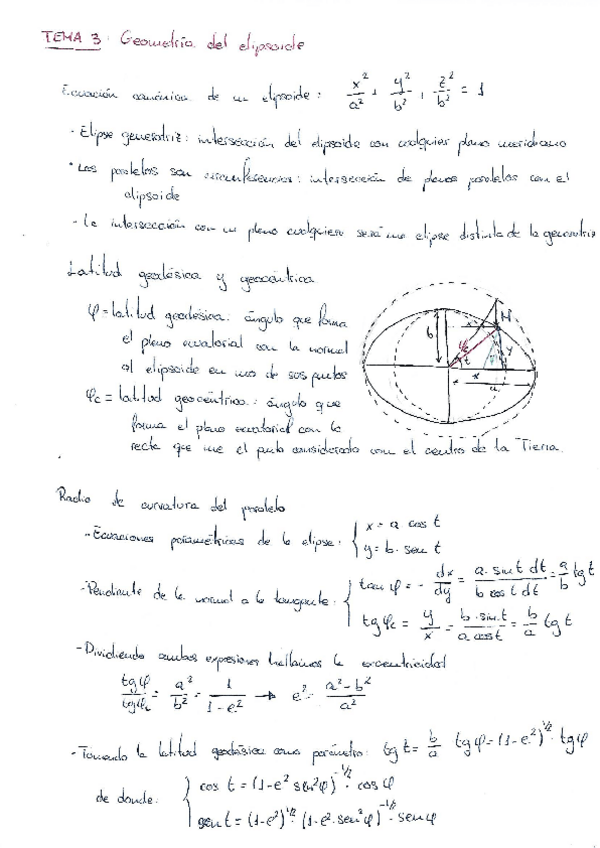 TEMA 3: Geometría del elipsoide
Ecuación canónica de un elipsoide: x²/a² + y²/b² + z²/b² = 1
- Elipse generatriz: intersección del elipsoide con cualquier plano meridiano
- Los paralelos son circunferencias: intersección de planos paralelos con el
elipsoide
- La intersección con un plano cualquiera será una elipse distinta de la generatriz
Latitud geodésica y geocéntrica
φ = latitud geodésica: ángulo que forma
el plano ecuatorial con la normal
al elipsoide en uno de sus puntos
φc = latitud geocéntrica: ángulo que
forma el plano ecuatorial con la
recta que une el punto considerado con el centro de la Tierra.
b
t
x
y
a
Radio de curvatura del paralelo
- Ecuaciones paramétricas de la elipse: { x = a cos t
y = b · sen t
- Pendiente de la normal a la tangente: { tan φ = - dx/dy = a · sin t dt / b cos t dt = a/b tg t
tg φc = y/x = b · sin t / a cos t = b/a tg t
- Dividiendo ambas expresiones hallamos la excentricidad
tg φ / tg φc = a²/b² = 1/(1-e²) → e² = (a²-b²)/a²
- Tomando la latitud geodésica como parámetro: tg t = b/a tg φ = (1-e²)^1/2 · tg φ
de donde: { cos t = (1-e² sen²φ)^-1/2 · cos φ
sen t = (1-e²)^1/2 · (1-e² · sen²φ)^-1/2 · sen φ